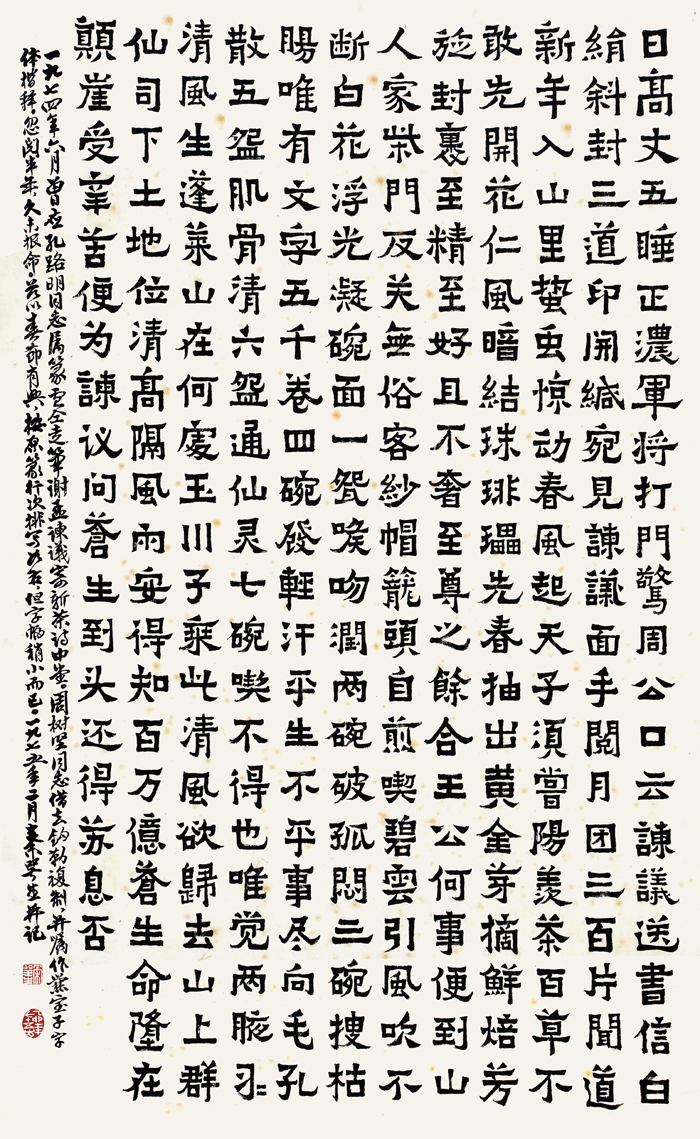 日高丈五睡正濃軍将打門驚周公口云諫議送書信白
絹斜封三道印開緘宛見諫議面手閲月团三百片聞道
新年入山里蛰虫惊动春風起天子須嘗陽羡茶百草不
敢先開花仁風暗結珠琲瓃先春抽出黄金芽摘鮮焙芳
旋封裹至精至好且不奢至尊之餘合王公何事便到山
人家柴門反关無俗客紗帽籠頭自煎喫碧雲引風吹不
断白花浮光凝碗面一盌喉吻潤两碗破孤悶三碗搜枯
腸唯有文字五千卷四碗發輕汗平生不平事尽向毛孔
散五盌肌骨清六盌通仙灵七碗喫不得也唯觉两腋习=
清風生蓬莱山在何處玉川子乘此清風欲歸去山上群
仙司下土地位清高隔風雨安得知百万億蒼生命墮在
顛崖受辛苦便为諫议问蒼生到头还得苏息否
一九七四年六月曾应孔路明同志属篆走笔谢孟諫議寄新茶诗中堂。周树坚同志借去钩勒複制,并嘱作子字
体楷釋。忽閲半年,久未报命。兹以春節有興,按原篆行次排写如右,但字略稍小而已。一九七五年二月并记